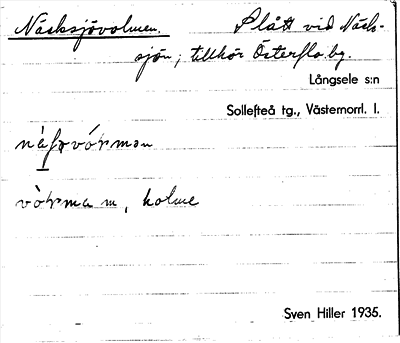 Näcksjövolmen. Slått vid Näck-
sjön; tillhör Österflo bg.
Långsele s:n
Sollefteå tg., Västernorrl. l.
m, holme
Sven Hiller 1935.